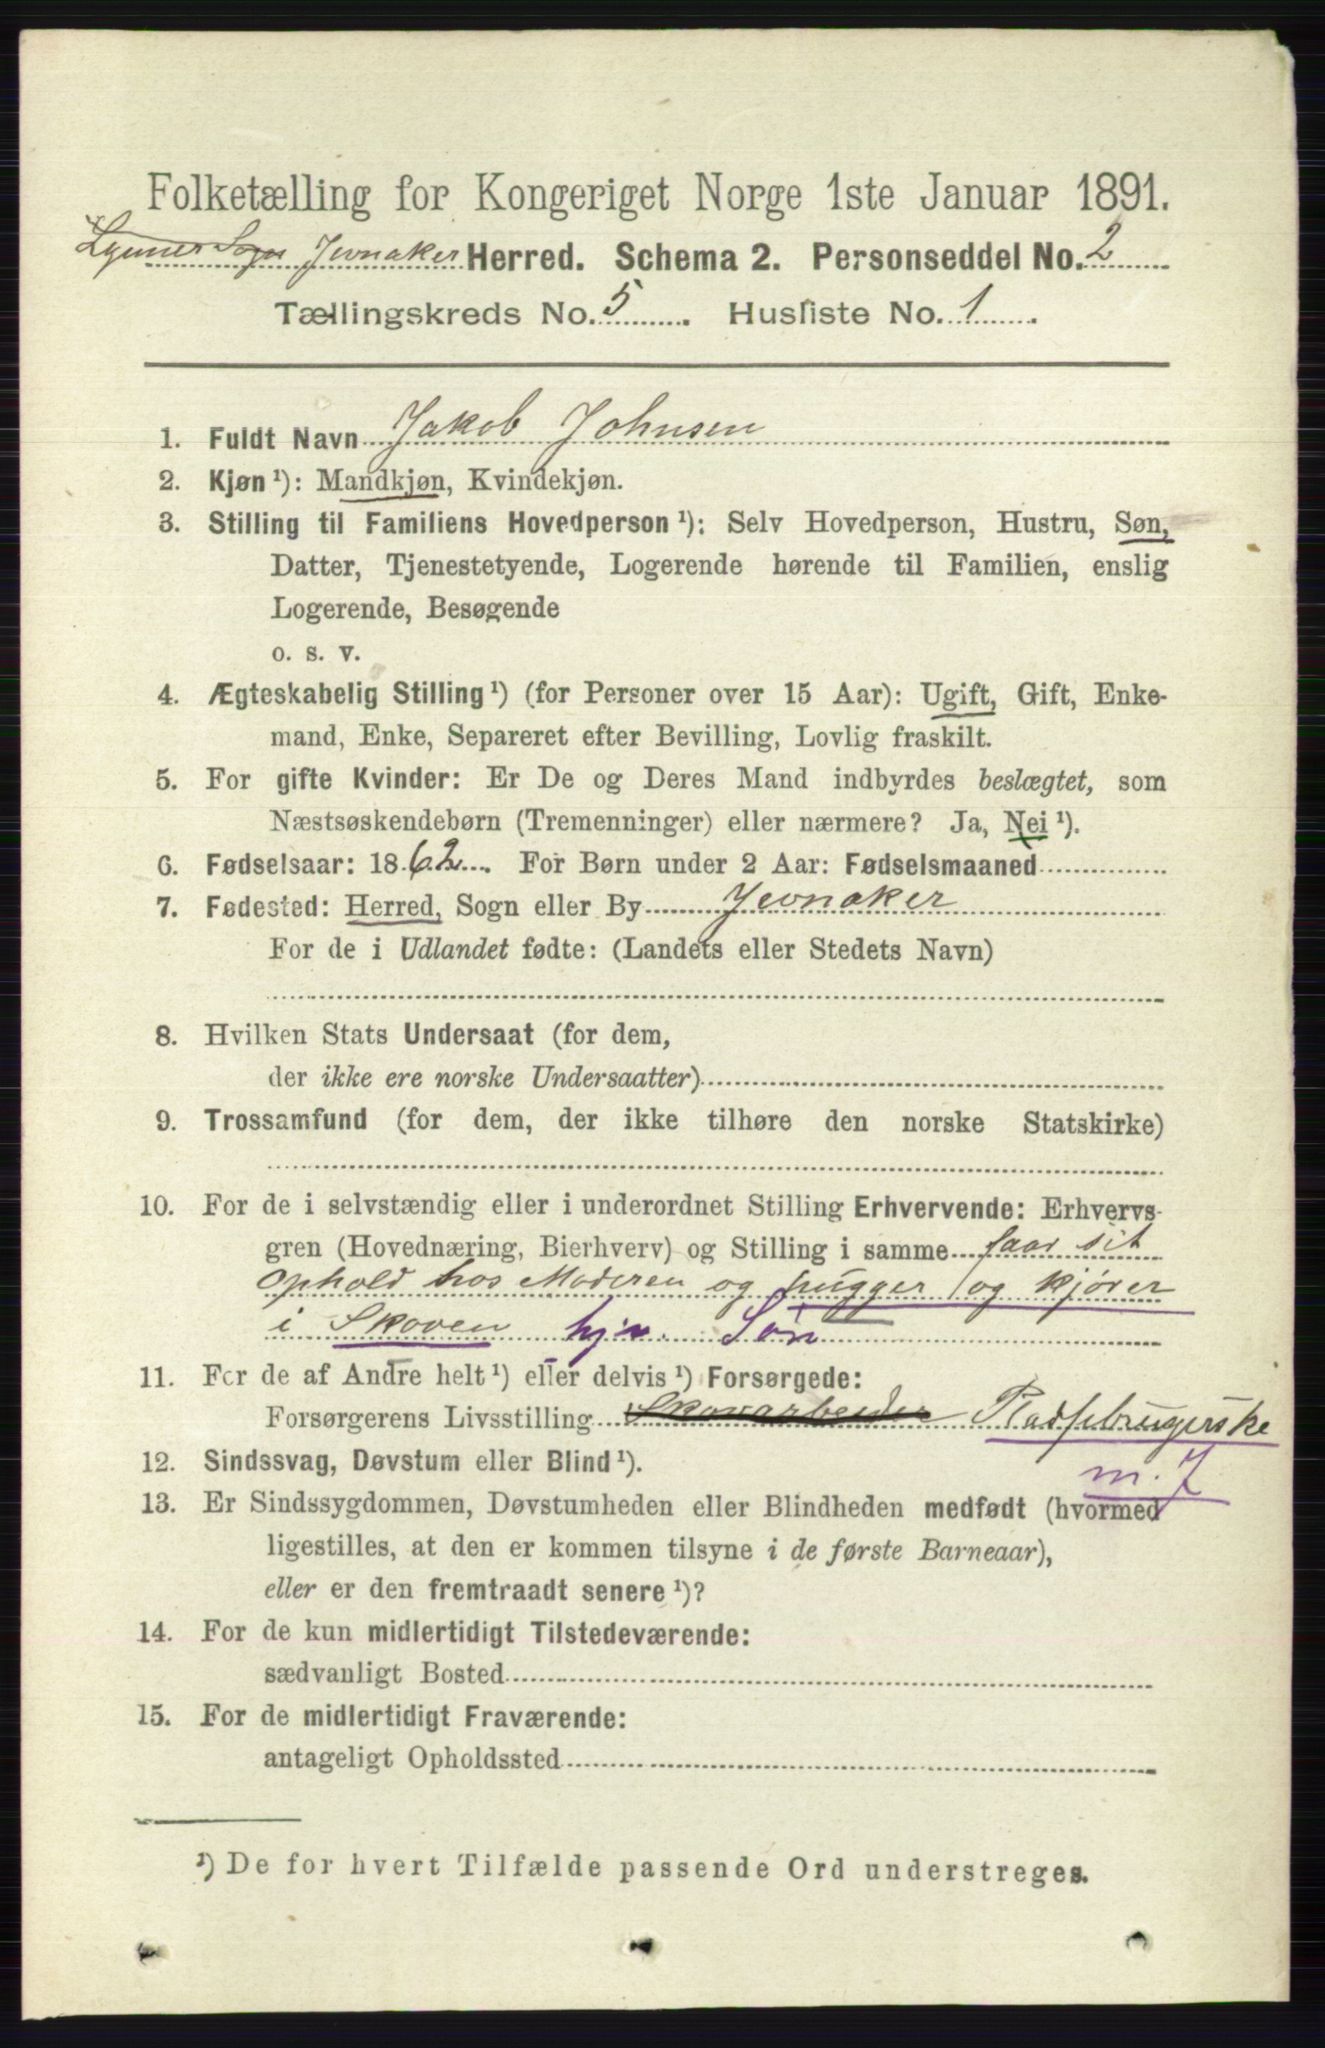 Folketælling for Kongeriget Norge 1ste Januar 1891.
Lynner Sogn Jevnaker Herred. Schema 2. Personseddel No. 2
Tællingskreds No. 5 Husliste No. 1
1. Fuldt Navn Jakob Johnsen
2. Kjøn ¹): Mandkjøn, Kvindekjøn.
3. Stilling til Familiens Hovedperson ¹): Selv Hovedperson, Hustru, Søn,
Datter, Tjenestetyende, Logerende hørende til Familien, enslig
Logerende, Besøgende
o. s. v.
4. Ægteskabelig Stilling ¹) (for Personer over 15 Aar): Ugift, Gift, Enke-
mand, Enke, Separeret efter Bevilling, Lovlig fraskilt.
5. For gifte Kvinder: Er De og Deres Mand indbyrdes beslægtet, som
Næstsøskendebørn (Tremenninger) eller nærmere? Ja, Nei ¹).
6. Fødselsaar: 1862. For Børn under 2 Aar: Fødselsmaaned
7. Fødested: Herred, Sogn eller By Jevnaker
For de i Udlandet fødte: (Landets eller Stedets Navn)
8. Hvilken Stats Undersaat (for dem,
der ikke ere norske Undersaatter)
9. Trossamfund (for dem, der ikke tilhøre den norske Statskirke)
10. For de i selvstændig eller i underordnet Stilling Erhvervende: Erhvervs-
gren (Hovednæring, Bierhverv) og Stilling i samme faar sit
Ophold hos Moderen og hugger og kjører
i Skoven hjv. Søn
11. For de af Andre helt ¹) eller delvis ¹) Forsørgede:
Forsørgerens Livsstilling Skovarbeider Pladsbrugerske
12. Sindssvag, Døvstum eller Blind ¹).
m. J
13. Er Sindssygdommen, Døvstumheden eller Blindheden medfødt (hvormed
ligestilles, at den er kommen tilsyne i de første Barneaar),
eller er den fremtraadt senere ¹)?
14. For de kun midlertidigt Tilstedeværende:
sædvanligt Bosted
15. For de midlertidigt Fraværende:
antageligt Opholdssted
¹) De for hvert Tilfælde passende Ord understreges.